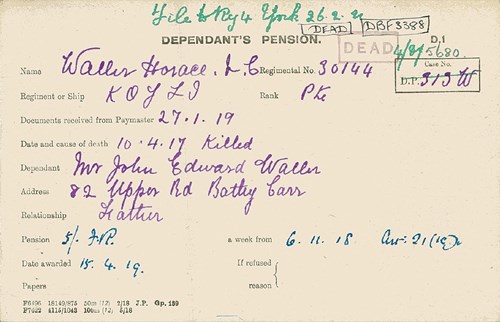 File to Reg 4 York 26.2.21
DEAD DBF3388
DEPENDANT'S PENSION. D.1
DEAD 4/D/5680.
Name Waller Horace. V.C Regimental No. 30144 Case No.
D.P. 313 W
Regiment or Ship KOYLI Rank Pte
Documents received from Paymaster 27.1.19
Date and cause of death 10.4.17 Killed
Dependant Mr John Edward Waller
Address 82 Upper Rd Batley Carr
Relationship Father
Pension 5/. F.P. a week from 6.11.18 Art: 21(1a).
Date awarded 15.4.19. If refused
Papers reason
F6496 18149/875 50m (12) 2/18 J.P. Gp. 159
P7622 4115/1043 100m (12) 5/18